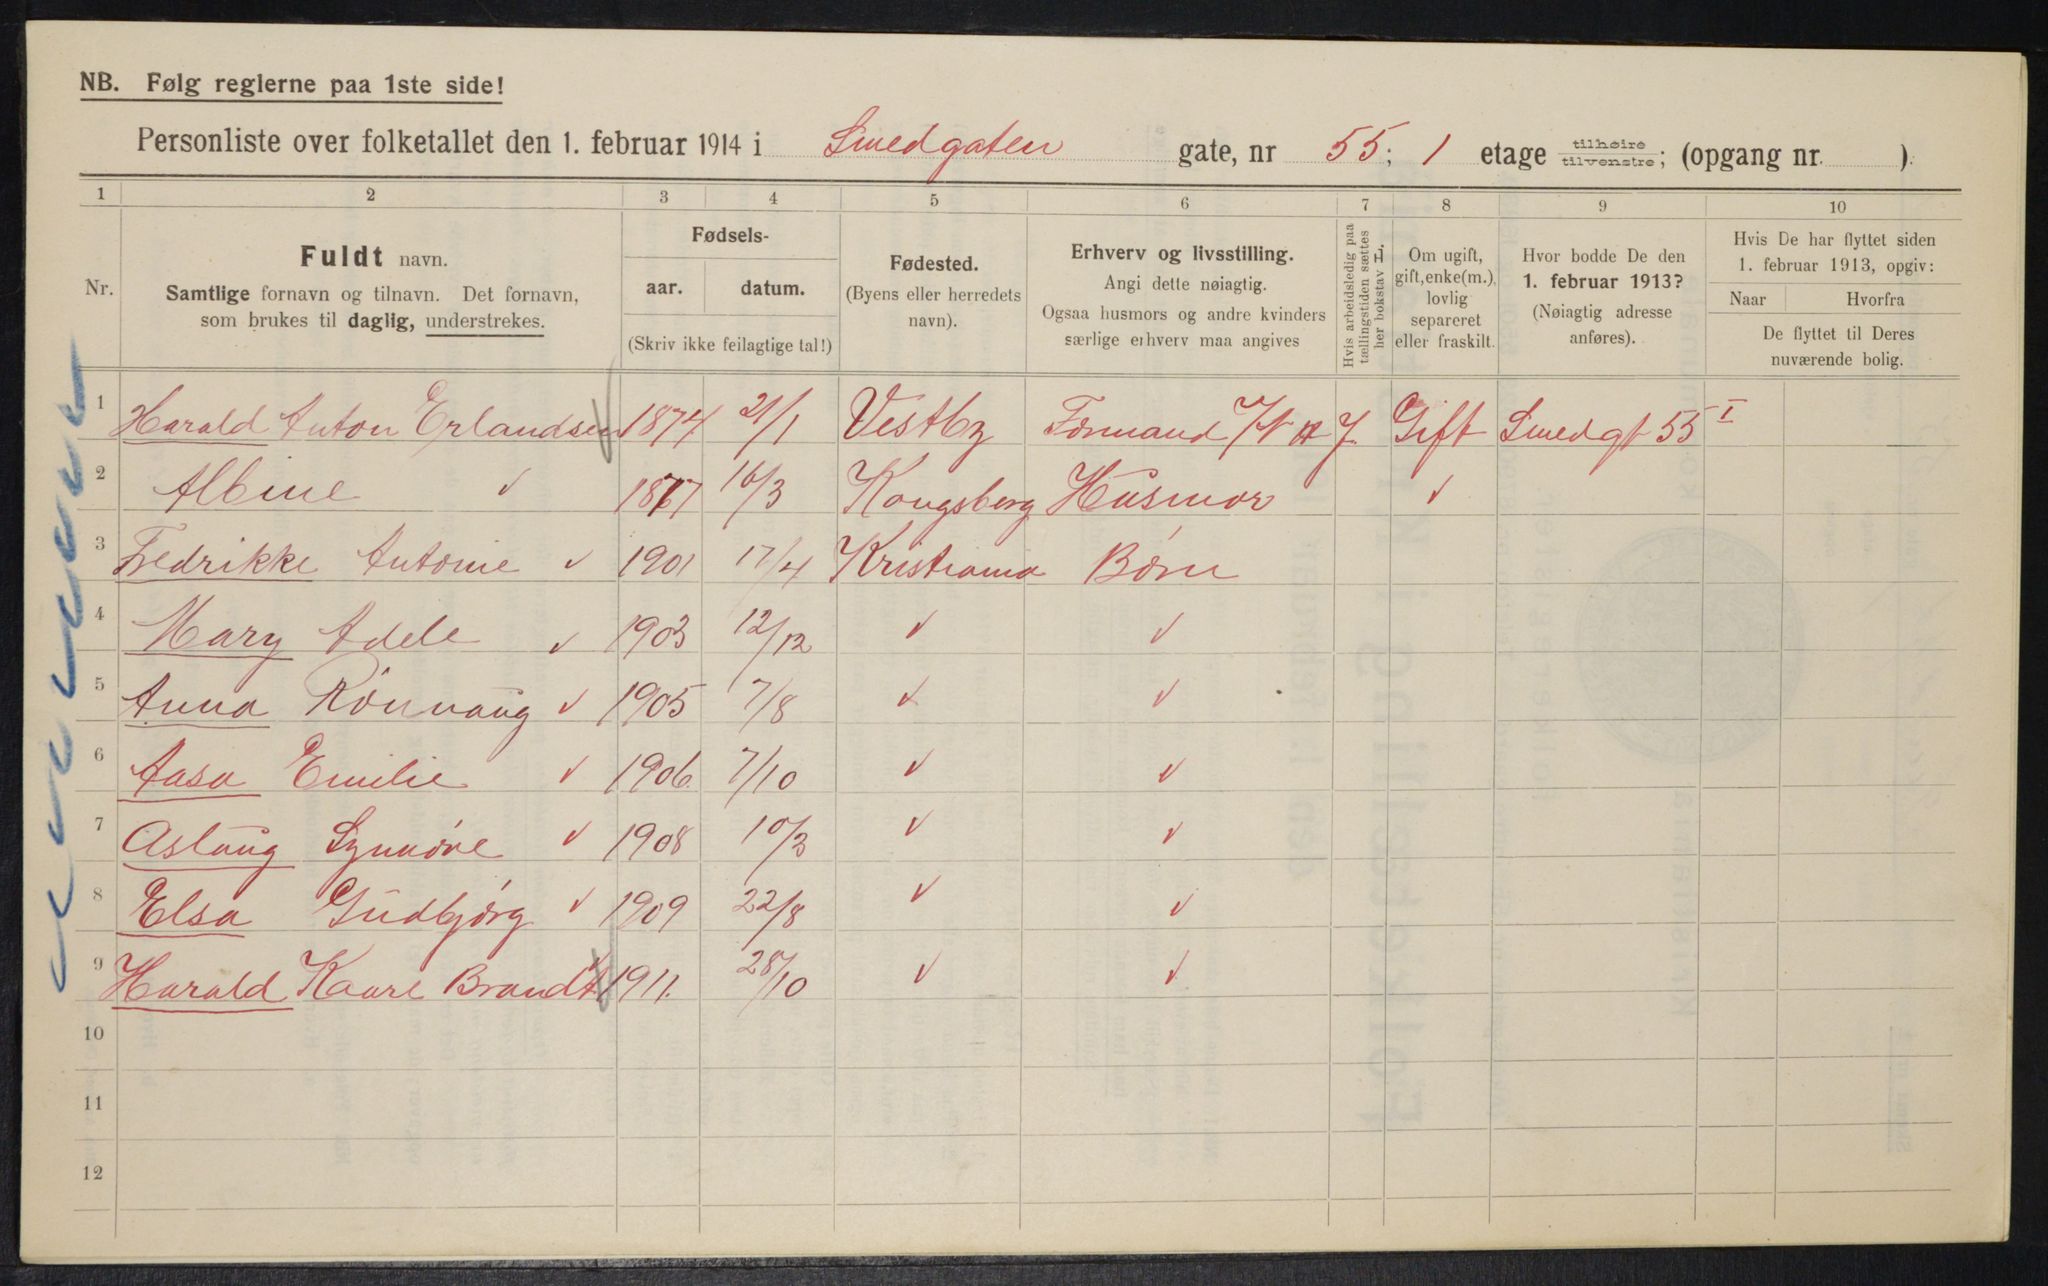 NB. Følg reglerne paa 1ste side!
Personliste over folketallet den 1. februar 1914 i Smedgaten gate, nr 55; 1 etage tilhøire tilvenstre; (opgang nr. ).
1 2 3 4 5 6 7 8 9 10
Nr.
Fuldt navn.
Samtlige fornavn og tilnavn. Det fornavn,
som brukes til daglig, understrekes.
Fødsels-
aar. datum.
(Skriv ikke feilagtige tal!)
Fødested.
(Byens eller herredets
navn).
Erhverv og livsstilling.
Angi dette nøiagtig.
Ogsaa husmors og andre kvinders
særlige erhverv maa angives
Hvis arbeidsledig paa
tællingstiden sættes
her bokstav L.
Om ugift,
gift, enke(m.),
lovlig
separeret
eller fraskilt.
Hvor bodde De den
1. februar 1913?
(Nøiagtig adresse
anføres).
Hvis De har flyttet siden
1. februar 1913, opgiv:
Naar Hvorfra
De flyttet til Deres
nuværende bolig.
1 Harald Anton Erlandsen 1874 21/1 Vestby Formand Gift Smedgt 55 I
2 Albine √ 16/3 Kongsberg Husmor √
3 Fredrikke Antonie √ 1901 17/4 Kristiania Børn
4 Mary Adele √ 1903 12/12 √ √
5 Anna Rönnaug √ 1905 7/8 √ √
6 Aasa Emilie √ 1906 7/10 √ √
7 Aslaug Synnöve √ 1908 10/3 √ √
8 Elsa Gudbjörg √ 1909 22/8 √ √
9 Harald Kaare Brandt 1911. 28/10 √ √
10
11
12